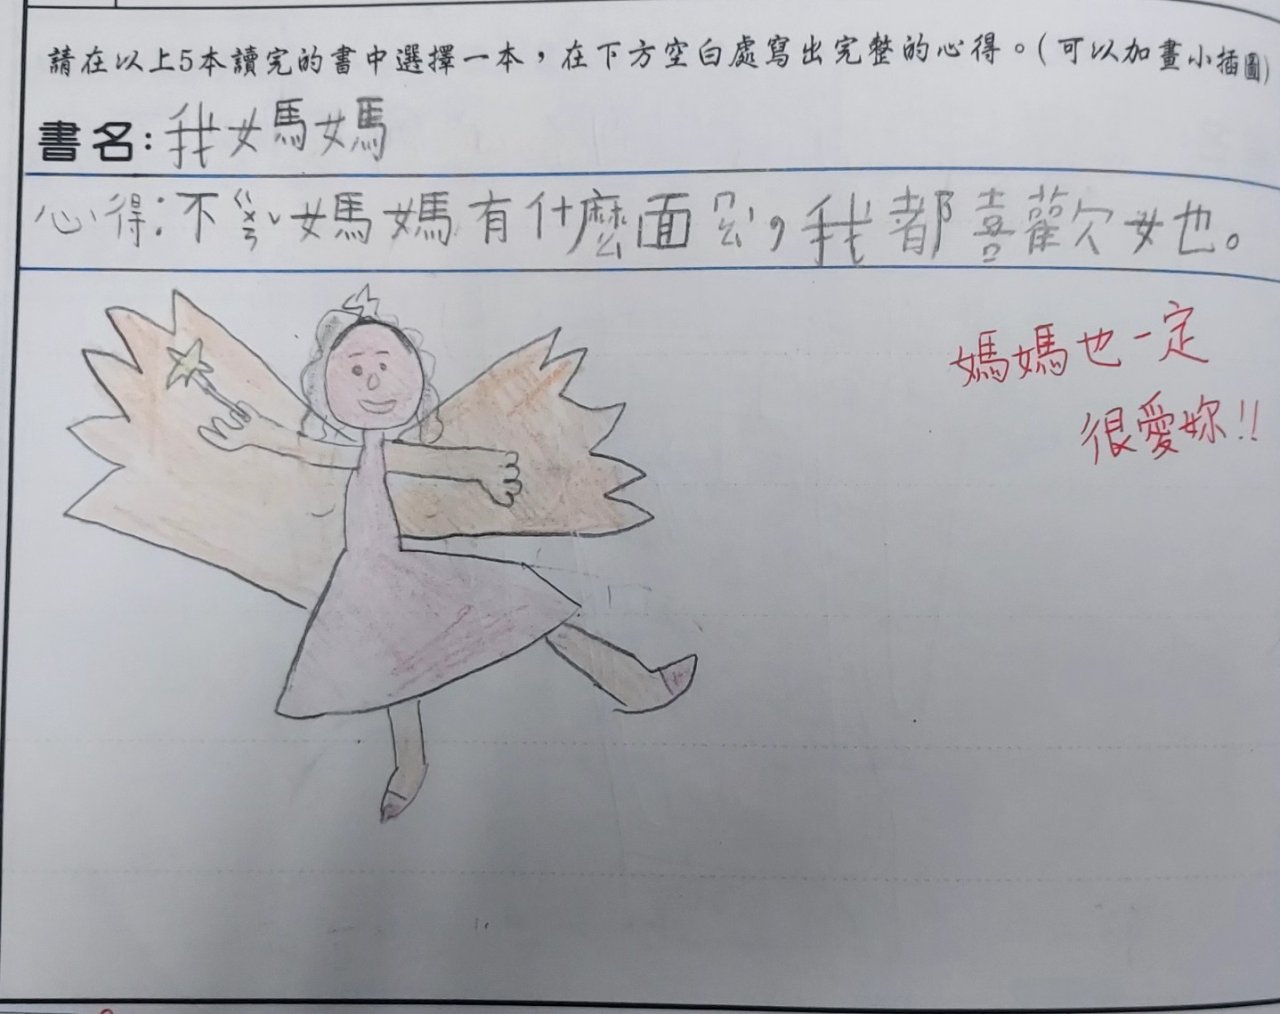 請在以上5本讀完的書中選擇一本，在下方空白處寫出完整的心得。(可以加畫小插圖)
書名:我媽媽
心得:不ㄍㄨㄢˇ媽媽有什麼面ㄇㄠˋ，我都喜歡她。
媽媽也一定
很愛妳!!